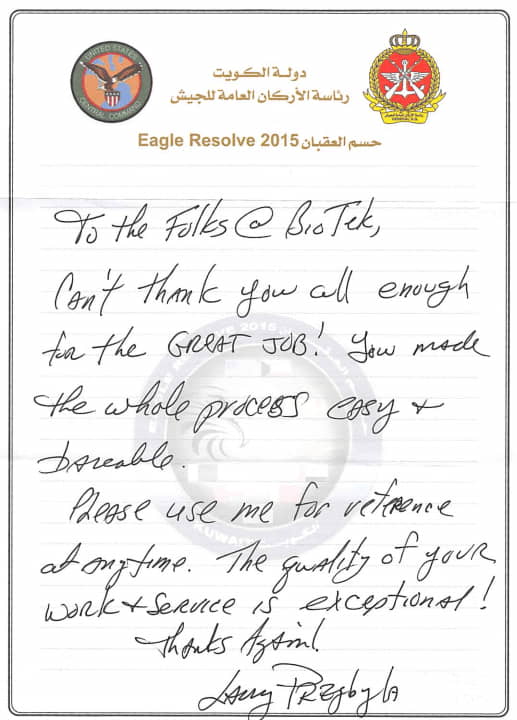 UNITED STATES
CENTRAL COMMAND
دولة الكويت
رئاسة الأركان العامة للجيش
Eagle Resolve 2015 حسم العقبان
To the Folks @ BioTek,
Can't thank you all enough
for the GREAT JOB! You made
the whole process easy +
bareable.
Please use me for reference
at anytime. The quality of your
work + service is exceptional!
Thanks Again!
Larry Przybyla
KUWAIT